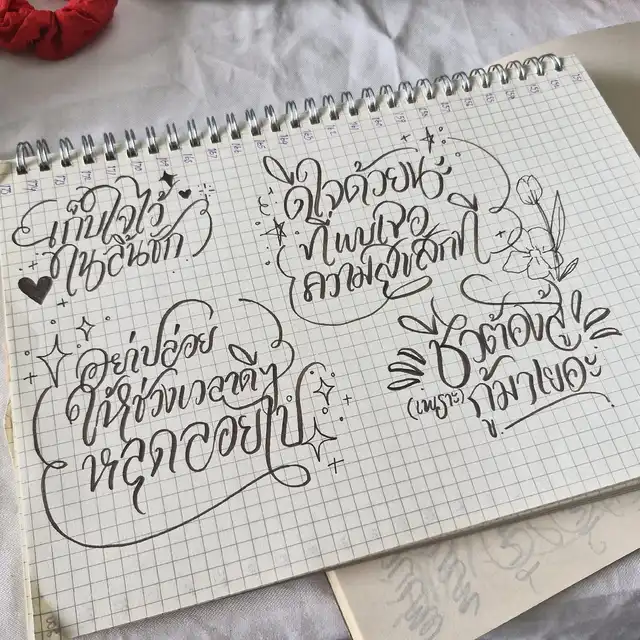 เก็บใจไว้
ในลิ้นชัก
ดีใจด้วยนะ
ที่พบเจอ
ความสุขสักที
อย่าปล่อย
ให้ช่วงเวลาดีๆ
หลุดลอยไป
ชีวิตต้องสู้
(เพราะ) กู้มาเยอะ